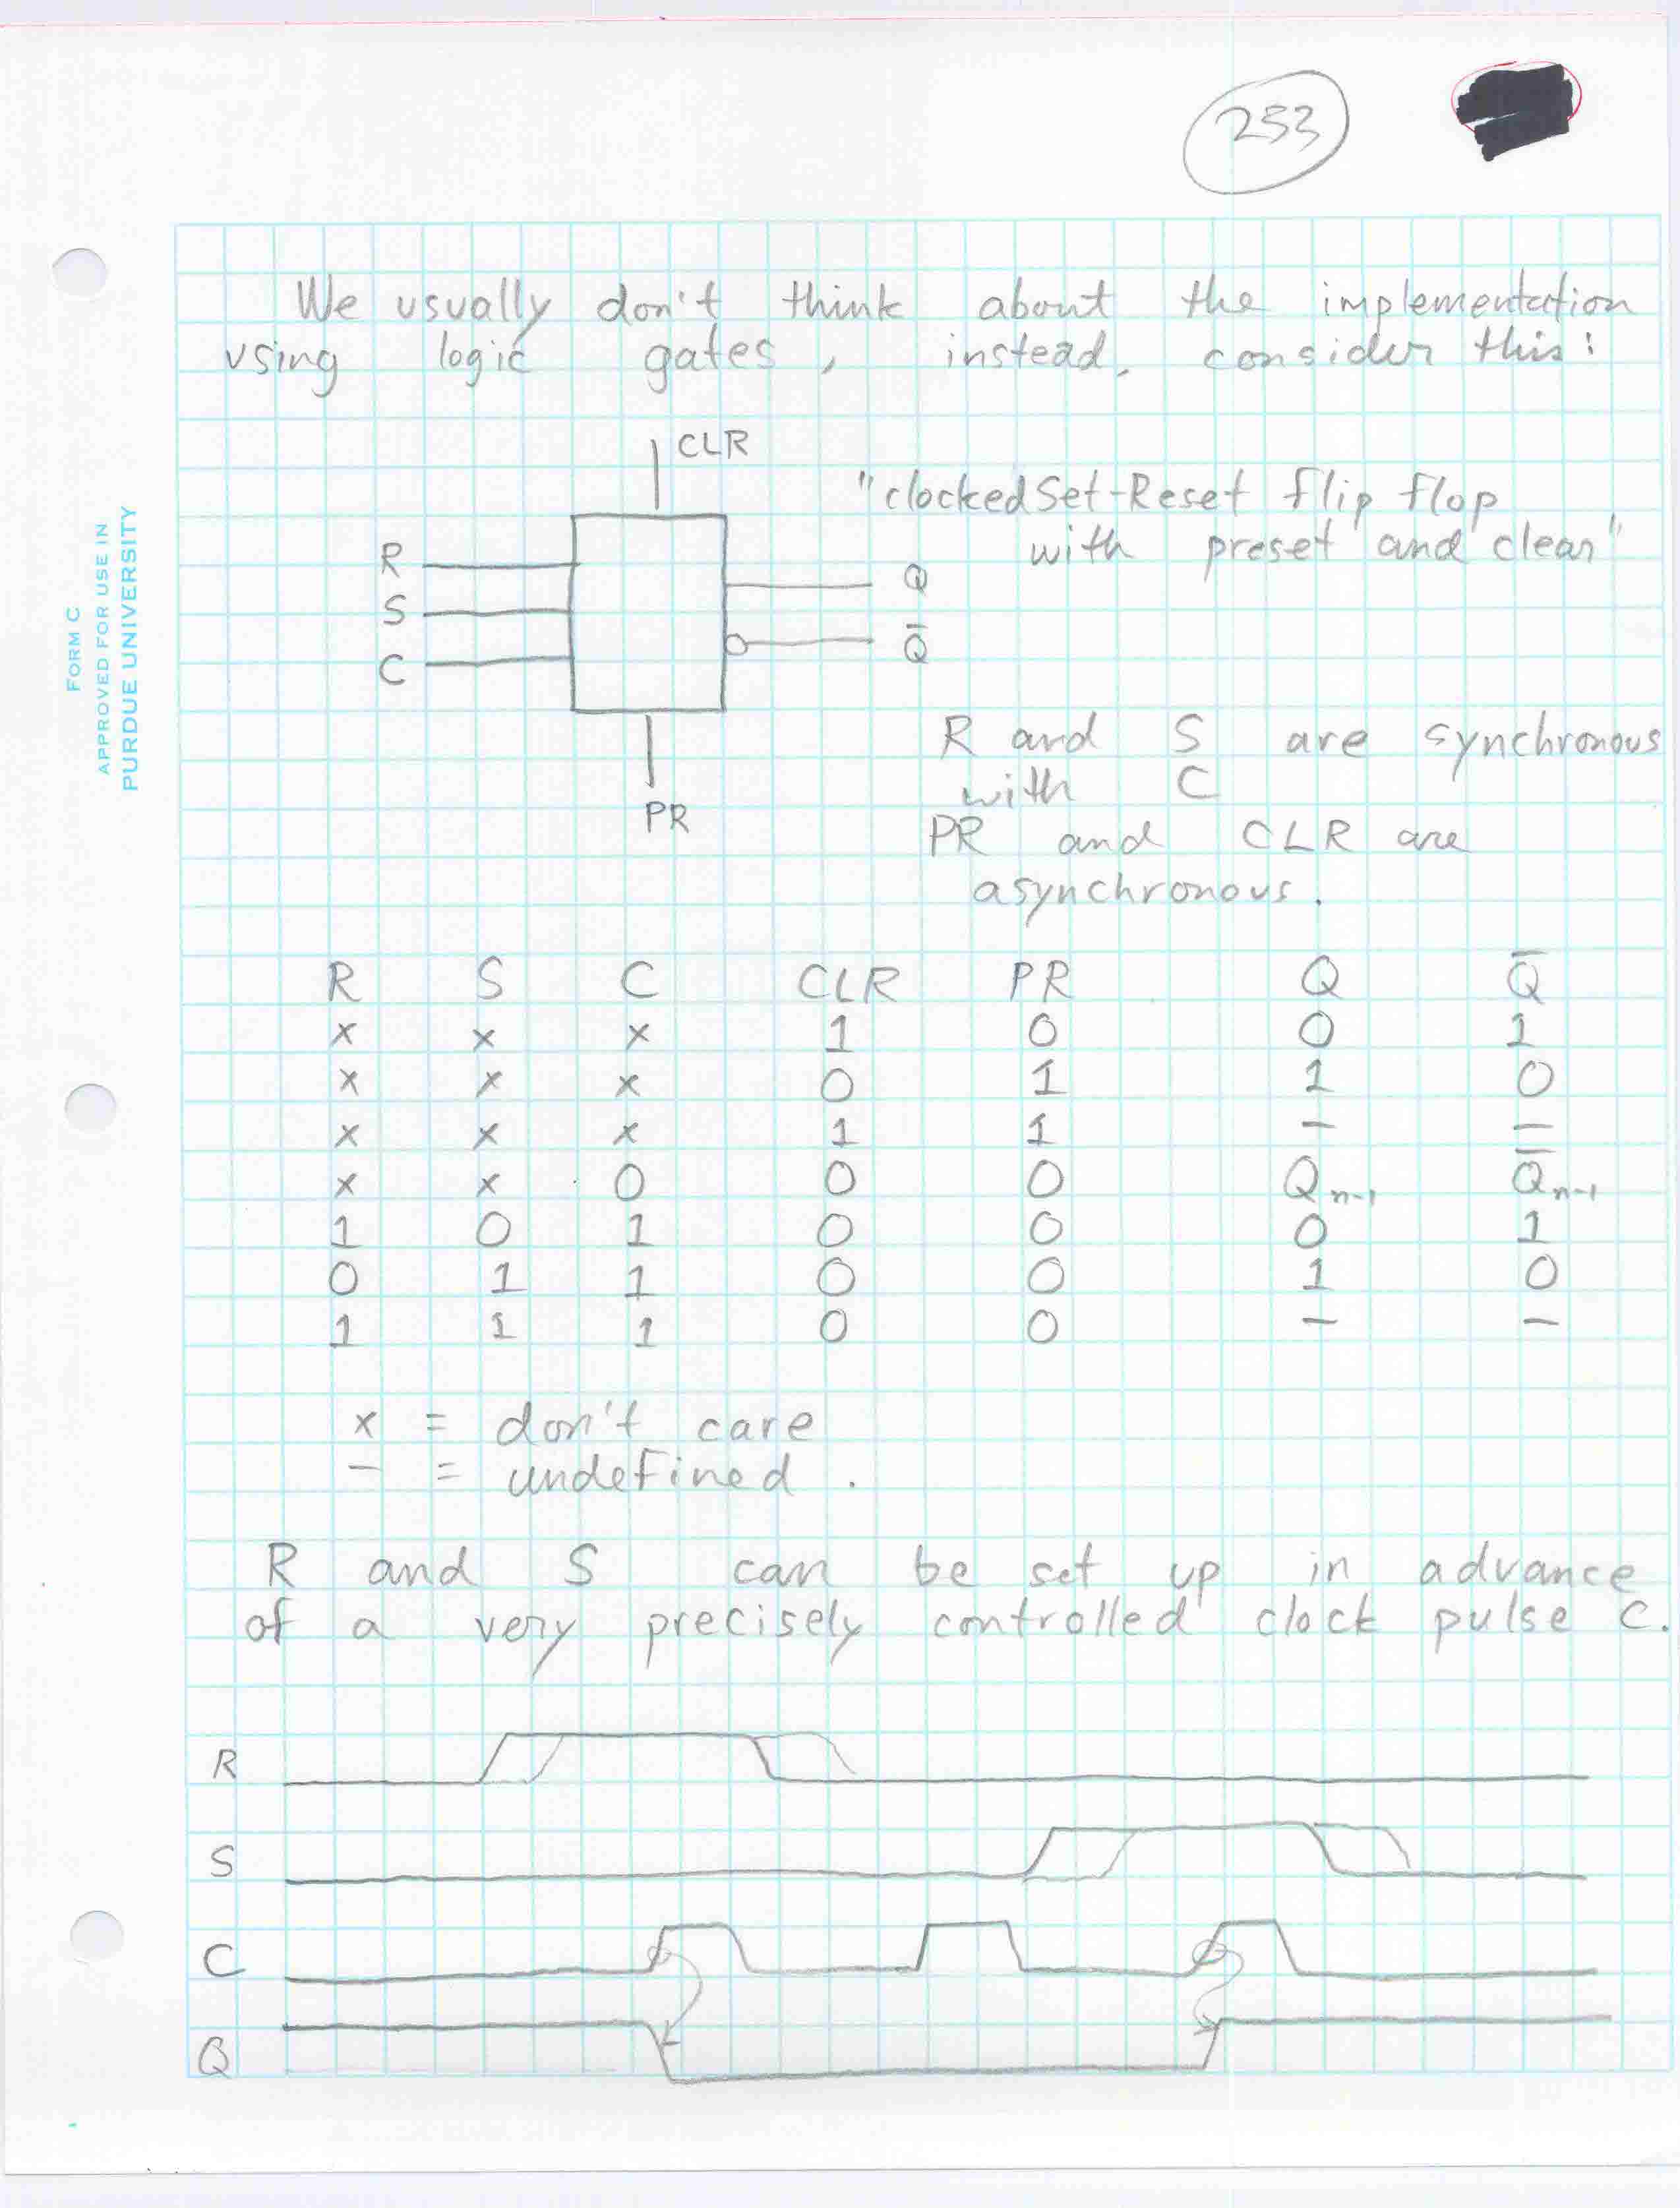 253
We usually don't think about the implementation
using logic gates, instead, consider this:
CLR
"clocked Set-Reset flip flop
with preset and clear"
R
S
C
Q
Q̅
PR
R and S are synchronous
with C
PR and CLR are
asynchronous.
R S C CLR PR Q Q̅
x x x 1 0 0 1
x x x 0 1 1 0
x x x 1 1 – –
x x 0 0 0 Qn-1 Q̅n-1
1 0 1 0 0 0 1
0 1 1 0 0 1 0
1 1 1 0 0 – –
x = don't care
– = undefined.
R and S can be set up in advance
of a very precisely controlled clock pulse C.
R
S
C
Q
FORM C
APPROVED FOR USE IN
PURDUE UNIVERSITY